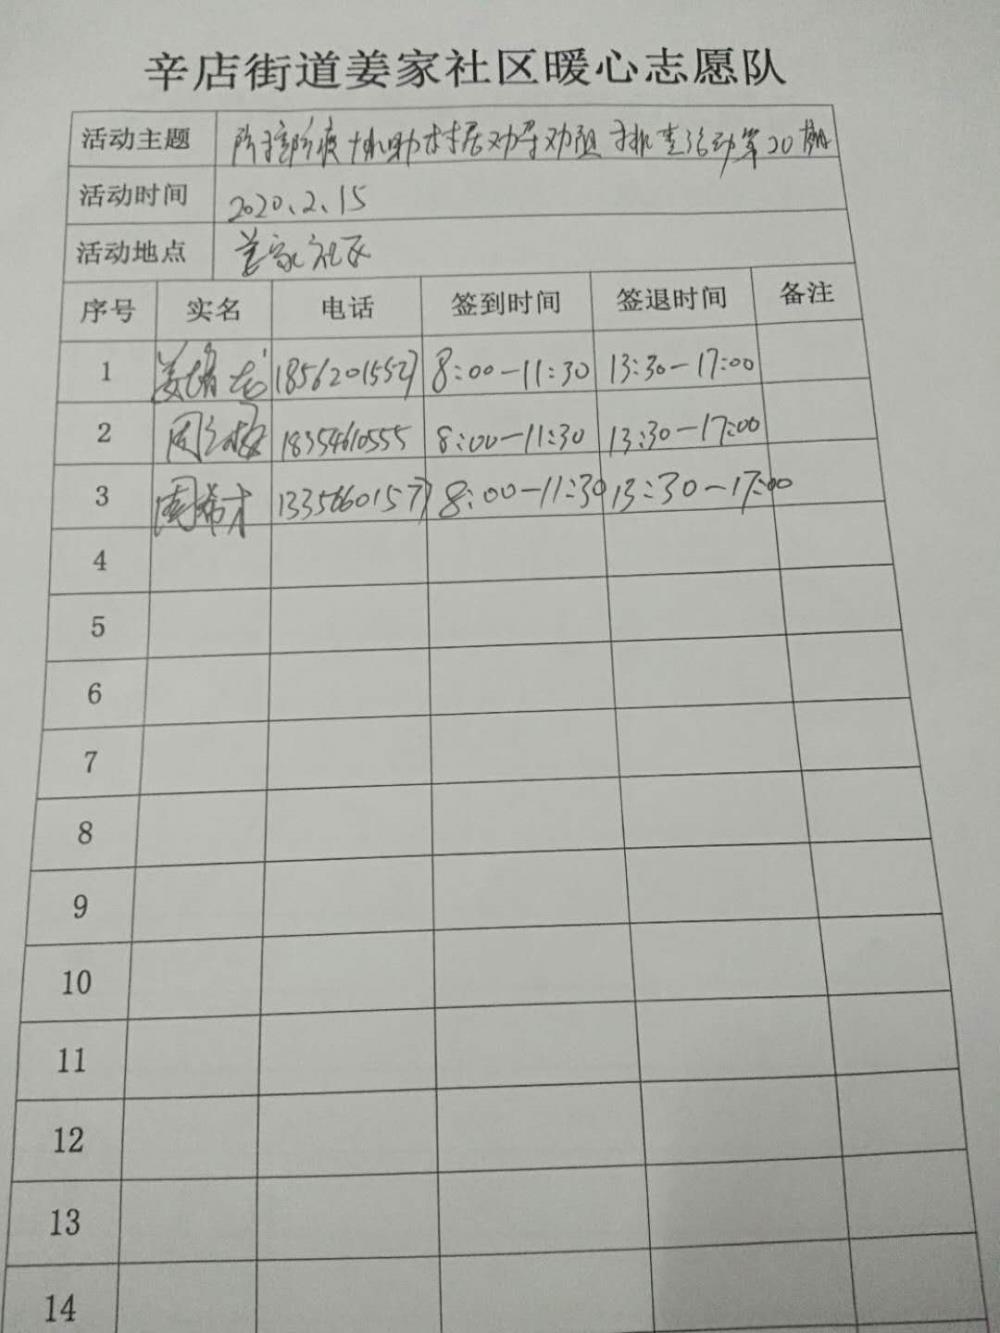 辛店街道姜家社区暖心志愿队
活动主题 防控防疫 协助村居劝导劝阻 排查活动第20期
活动时间 2020.2.15
活动地点 姜家社区
序号 实名 电话 签到时间 签退时间 备注
1 姜 18562015527 8:00-11:30 13:30-17:00
2 周 18354610555 8:00-11:30 13:30-17:00
3 周希才 13356601577 8:00-11:30 13:30-17:00
4
5
6
7
8
9
10
11
12
13
14